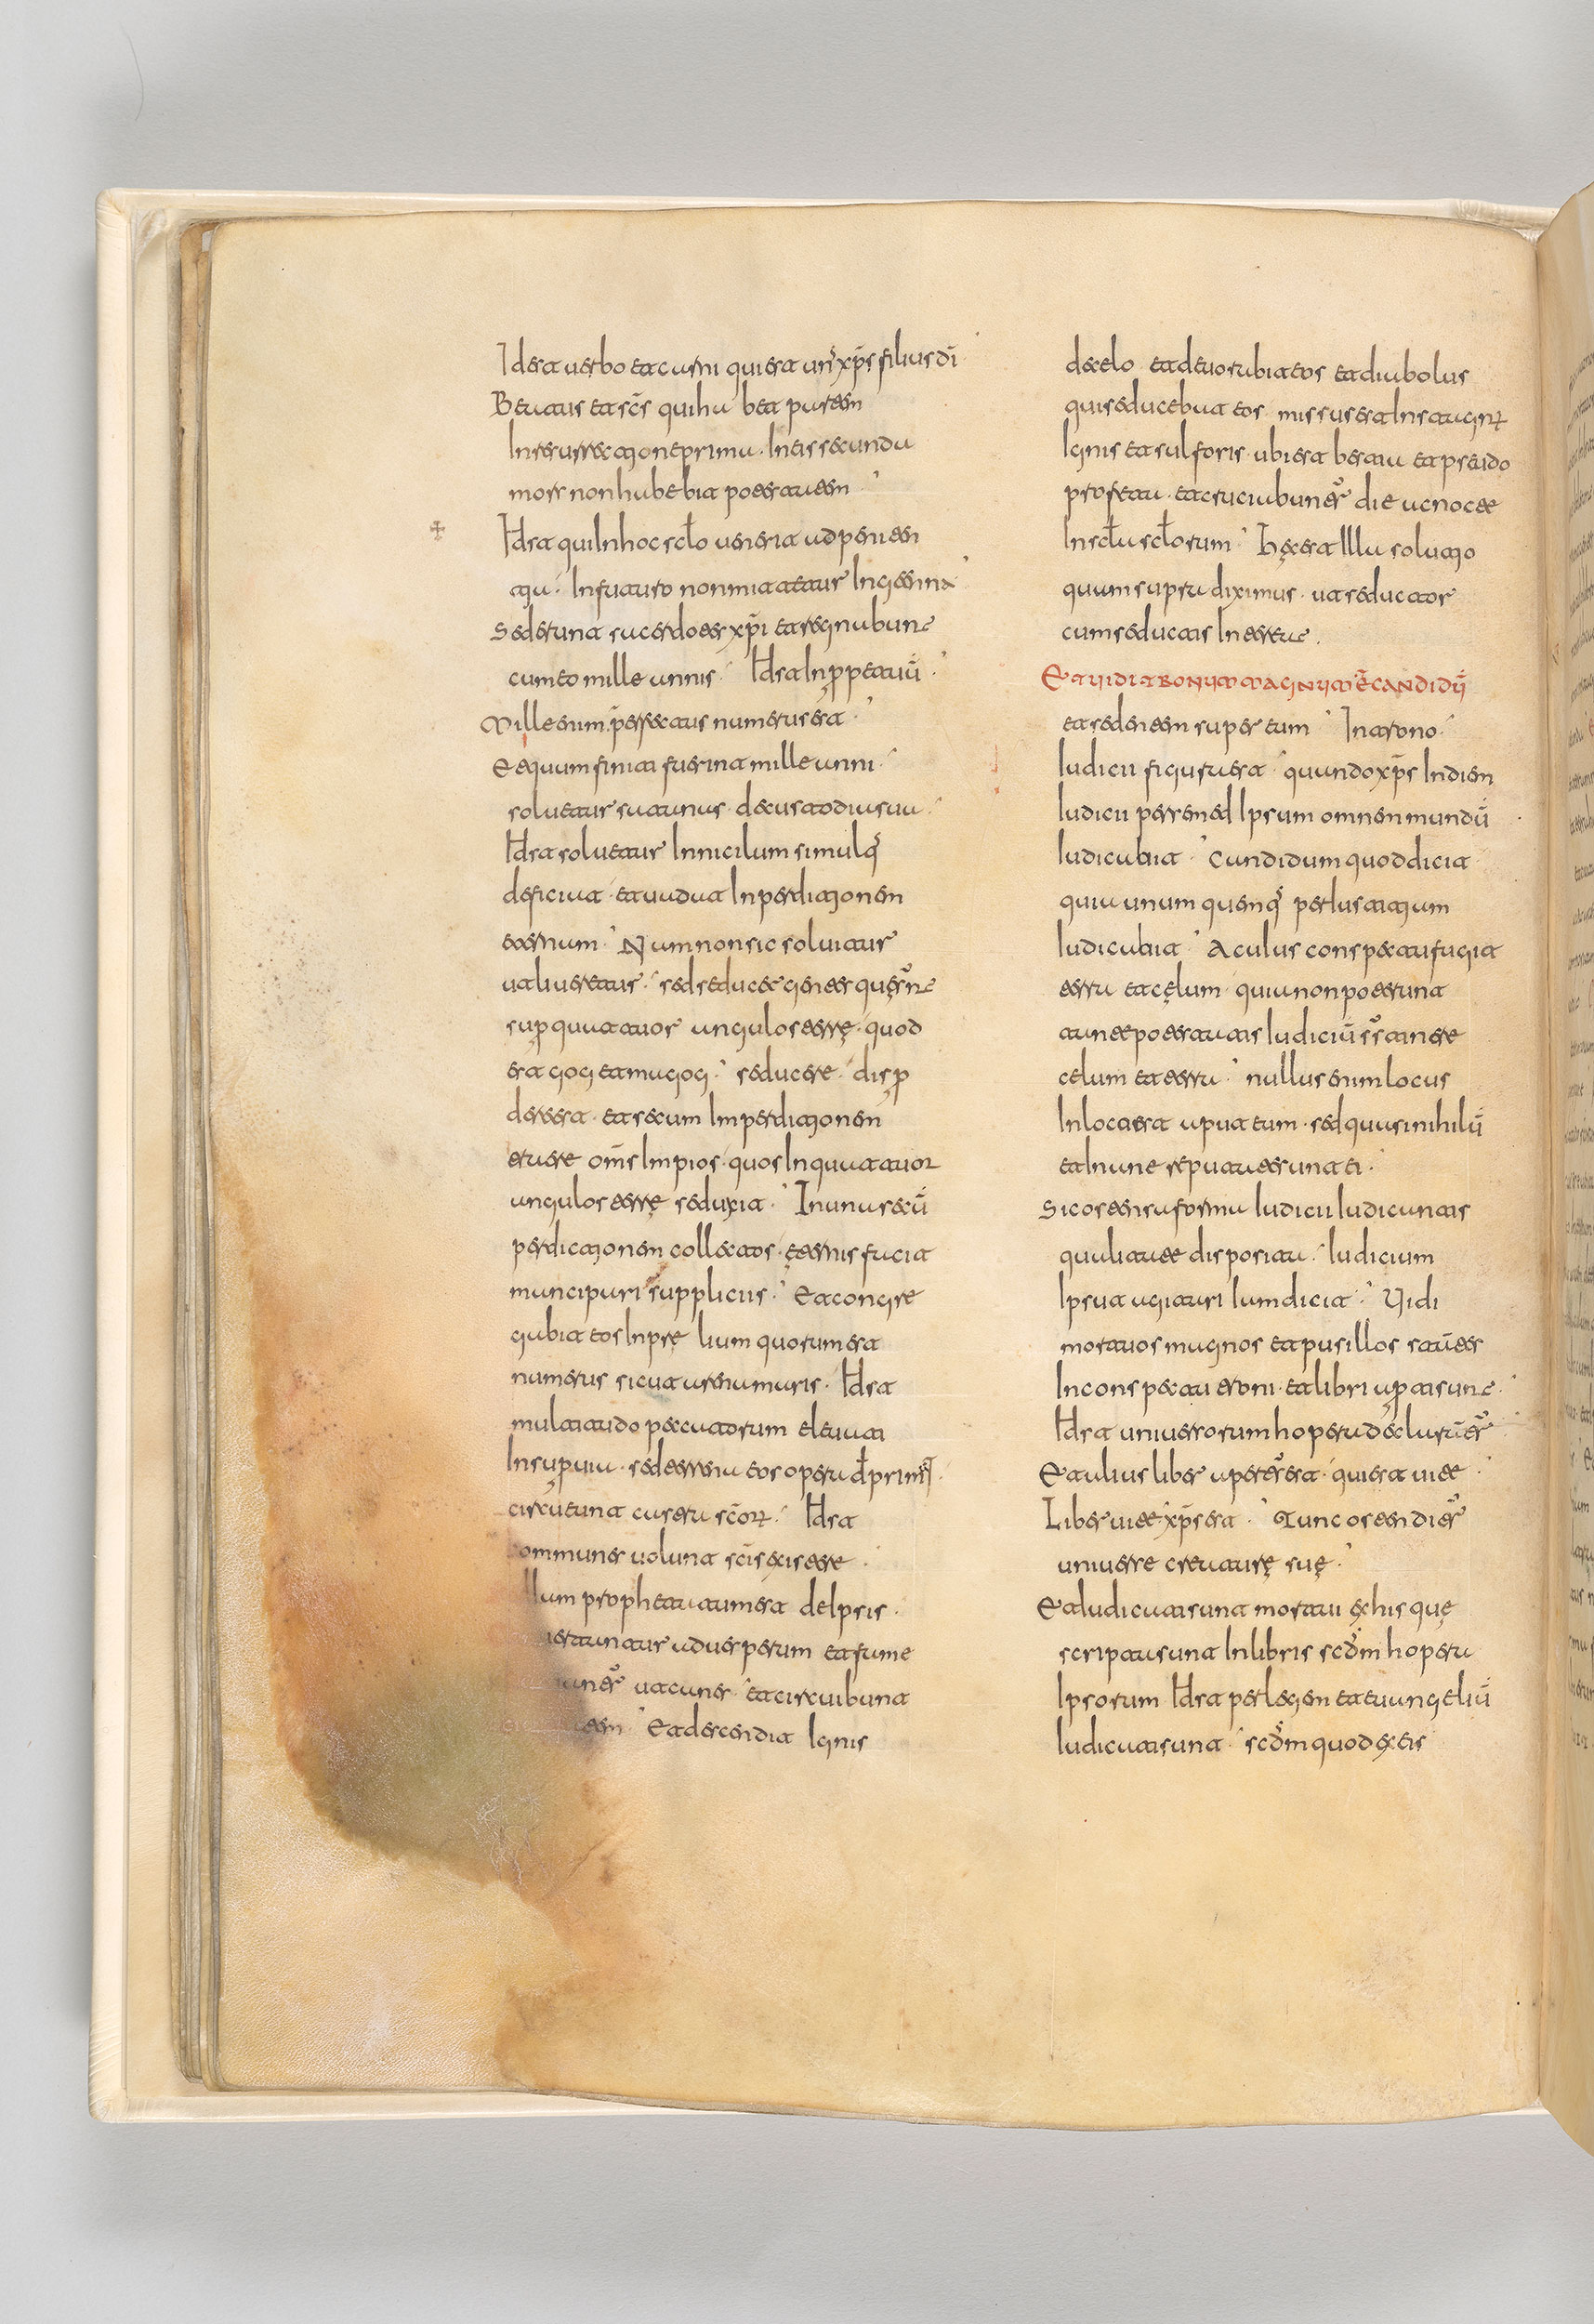 Id est uerbo et carni qui est un' xps̄ filius dī
Beatus et scs̄ qui habet partem
In resurrectione prima. In eis secunda
mors non habebit potestatem.
Id est qui In hoc sclo uenerit ad peniten
tia. In futuro non mittetur In gehenna
Sed erunt sacerdotes xpī et regnabunt
cum eo mille annis. Id est In pp̄etuū.
Mille enim perfectus numerus est.
Et quum finiti fuerint mille anni.
soluetur satanas de custodia sua.
Id est soluetur In nicilum simulq'
deficiat. et uadat In perditionem
eternum. Nam non sic soluitur
ut liueretur. sed seducet gentes que sn̄t
sup quattuor angulos terrę. quod
est gog et magog. seducere. disp
derest. et secum Imperditionem
oms̄ Impios. quos In quattuor
angulos terrę seduxit.
perditionem collectos. ęternis facia
mancipari suppliciis. Et congre
gabit eos In prelium quorum est
numerus sicut arena maris. Id est
multitudo peccatorum eleuati
sed eterna eos opera deprimit.
circuerunt castra scōr. Id est
communes uolunt scīs existere.
Illum prophetatum est de Ipsis.
ad uesperum et fame
ut canes. et circuibunt
Et descendit Ignis
de celo et deuorabit eos et diabolus
qui seducebat eos missus est In stagnr
Ignis et sulforis. ubi est bestia et pseudo
profeta. et cruciabuntur die ac nocte
In scla sclorum. Hęc est Illa solutio
quam supra diximus. ut seductor
cum seductis In
Et uidi tronum magnum et candidū
et sedentem super eum. In trono.
Iudicii figura est. quando xps̄ In diem
Iudicii per semed Ipsum omnem mundū
Iudicabit. Candidum quod dicit
quia unum quemq' per Iustitium
Iudicabit. A cuius conspectu fugit
terra et cęlum. quia non poterunt
tante potestatis Iudiciū sustinere
celum et terra. nullus enim locus
In loca est apta eum. sed quasi nihilū
et Inane reputa erunt ei.
Sic ostensa forma Iudicii Iudicantis
qualitate disposita. Iudicium
Ipsa agitari Iam dicit. Uidi
mortuos magnos et pusillos stantes
In conspectu troni. et libri aperti sunt.
Id est uniuersorum hopera declarantur
Et alius liber apertus est. qui est uite.
Liber uite xps̄ est. Tunc ostenditur
uniuerse creaturę suę.
Et Iudicati sunt mortui ex his quę
scripta sunt In libris scd̄m hopera
Ipsorum. Id est per legem et euangeliū
Iudicati sunt. scd̄m quod ex eis